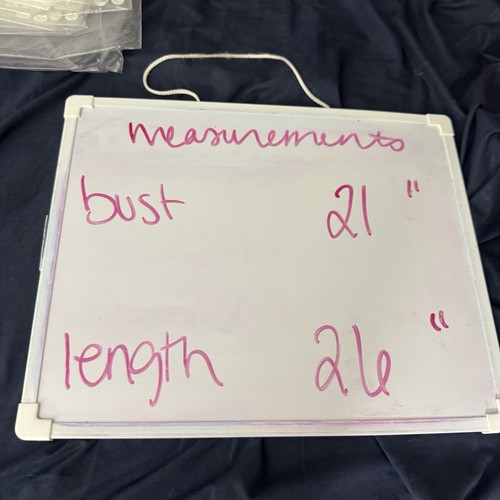 measurements
bust 21 "
length 26 "